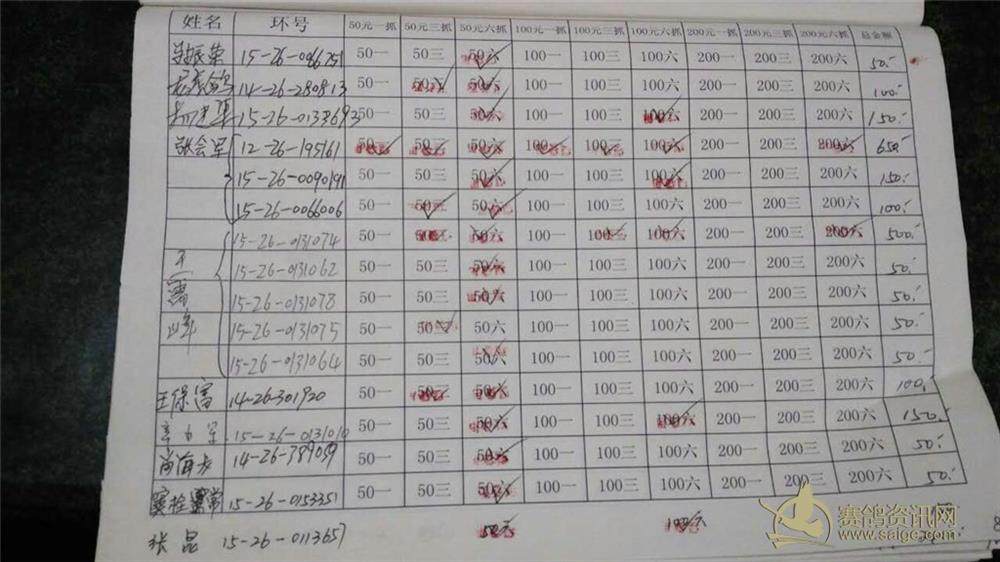 姓名 环号 50元一抓 50元三抓 50元六抓 100元一抓 100元三抓 100元六抓 200元一抓 200元三抓 200元六抓 总金额
振荣 15-26-0086251 50一 50三 50六 100一 100三 100六 200一 200三 200六 50.-
14-26-280813 50一 50三 50六 100一 100三 100六 200一 200三 200六 100.-
15-26-0138693 50一 50三 50六 100一 100三 100六 200一 200三 200六 150.-
张会军 12-26-195161 50一 50三 50六 100一 100三 100六 200一 200三 200六 650.-
15-26-0090191 50一 50三 50六 100一 100三 100六 200一 200三 200六 150.-
15-26-0066006 50一 50三 50六 100一 100三 100六 200一 200三 200六 100.-
15-26-0131074 50一 50三 50六 100一 100三 100六 200一 200三 200六 500.-
15-26-0131062 50一 50三 50六 100一 100三 100六 200一 200三 200六 50.-
15-26-0131078 50一 50三 50六 100一 100三 100六 200一 200三 200六 50.-
15-26-0131075 50一 50三 50六 100一 100三 100六 200一 200三 200六 50.-
15-26-0131064 50一 50三 50六 100一 100三 100六 200一 200三 200六 50.-
王保富 14-26-301920 50一 50三 50六 100一 100三 100六 200一 200三 200六 100.-
15-26-0131010 50一 50三 50六 100一 100三 100六 200一 200三 200六 150.-
14-26-389089 50一 50三 50六 100一 100三 100六 200一 200三 200六 50.-
15-26-0153351 50一 50三 50六 100一 100三 100六 200一 200三 200六 50.-
张昆 15-26-0113657 50六 100六
赛鸽资讯网
www.saige.com